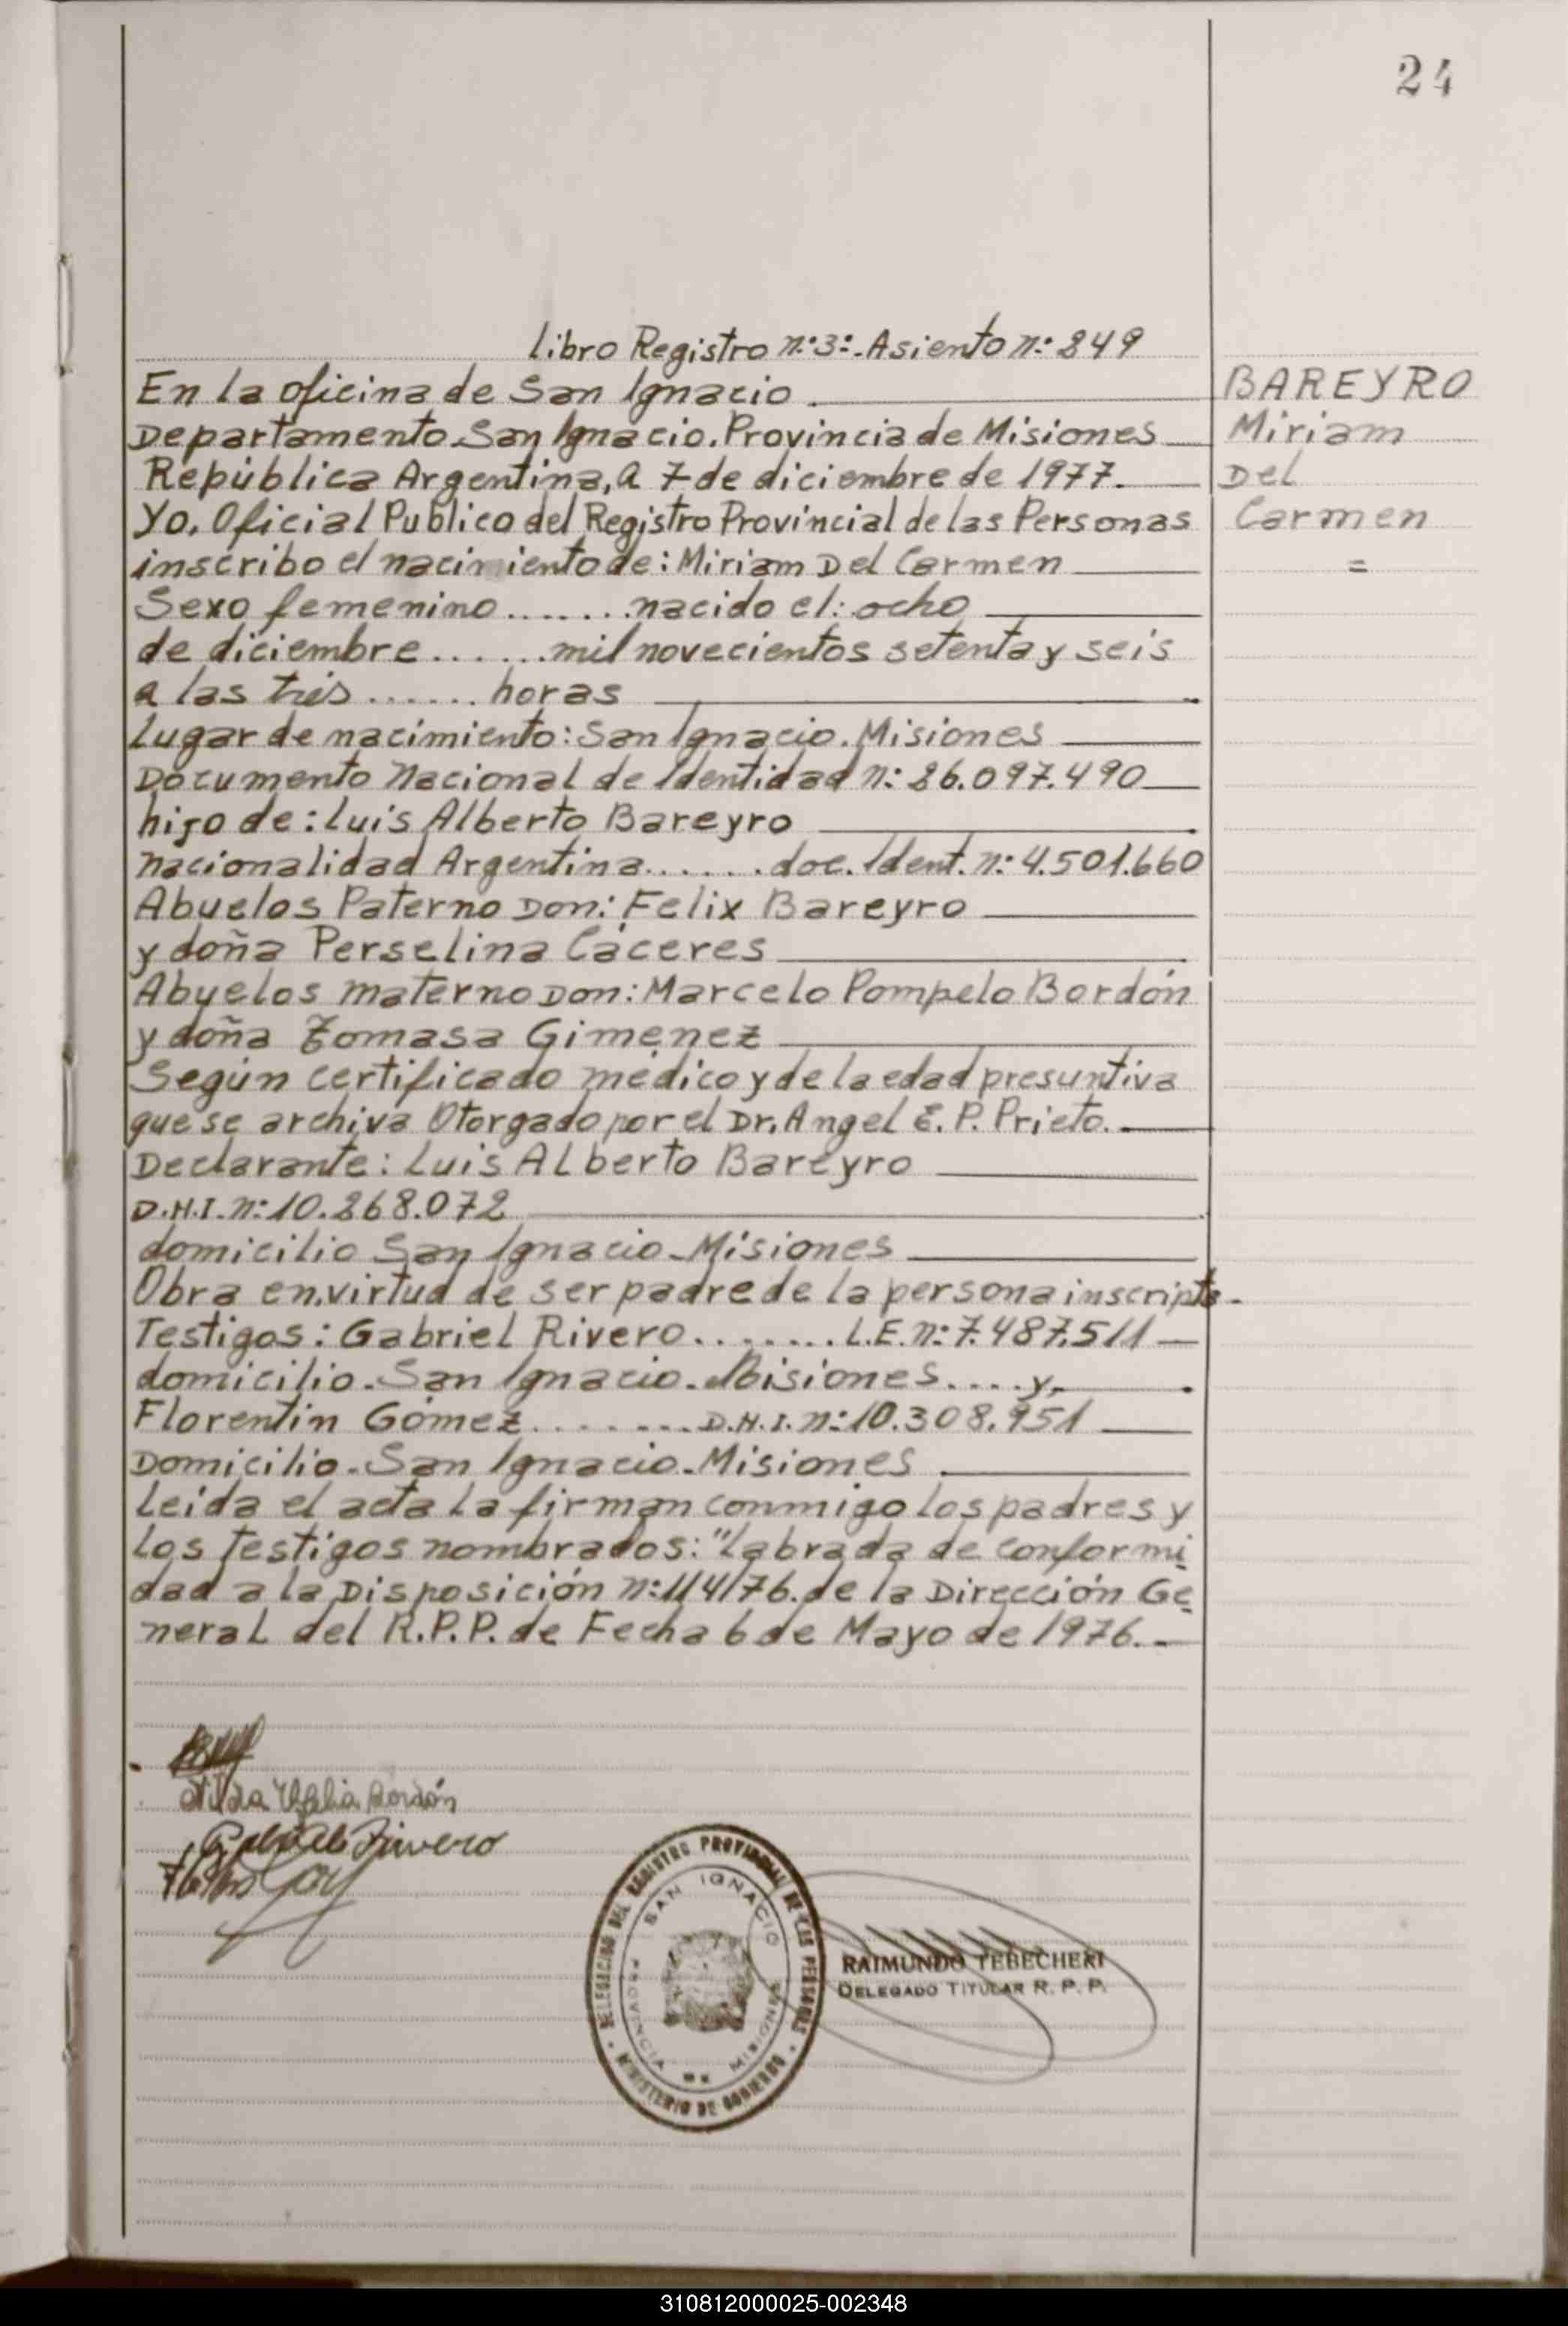 24
libro Registro n:3:. Asiento n: 249
En la oficina de San Ignacio.
Departamento San Ignacio. Provincia de Misiones
República Argentina, a 7 de diciembre de 1977.
Yo, Oficial Publico del Registro Provincial de las Personas
inscribo el nacimiento de: Miriam Del Carmen
Sexo femenino ....... nacido el: ocho
de diciembre ...... mil novecientos setenta y seis
a las tres ....... horas
Lugar de nacimiento: San Ignacio. Misiones
Documento Nacional de Identidad n: 26.097.490
hijo de: Luis Alberto Bareyro
nacionalidad Argentina ....... doc. Ident. n: 4.501.660
Abuelos Paterno Don: Felix Bareyro
y doña Perselina Cáceres
Abuelos materno Don: Marcelo Pompelo Bordón
y doña Tomasa Gimenez
Según certificado médico y de la edad presuntiva
que se archiva Otorgado por el Dr. Angel E. P. Prieto.
Declarante: Luis Alberto Bareyro
D.N.I. n: 10.268.072
domicilio San Ignacio - Misiones
Obra en virtud de ser padre de la persona inscripta-
Testigos: Gabriel Rivero ........ L.E. n: 7.487.511
domicilio - San Ignacio - Misiones .... y,
Florentín Gómez ........ D.N.I. n: 10.308.951
Domicilio - San Ignacio - Misiones
Leida el acta la firman conmigo los padres y
los testigos nombrados: "labrada de conformi
dad a la Disposición n: 114/76. de la Dirección Ge
neral del R.P.P. de Fecha 6 de Mayo de 1976.-
BAREYRO
Miriam
Del
Carmen
=
Bordón
Gabriel Rivero
DELEGACION DEL REGISTRO PROVINCIAL DE LAS PERSONAS
SAN IGNACIO
PROVINCIA MISIONES
MINISTERIO DE GOBIERNO
RAIMUNDO TEBECHERI
DELEGADO TITULAR R. P. P.
310812000025-002348